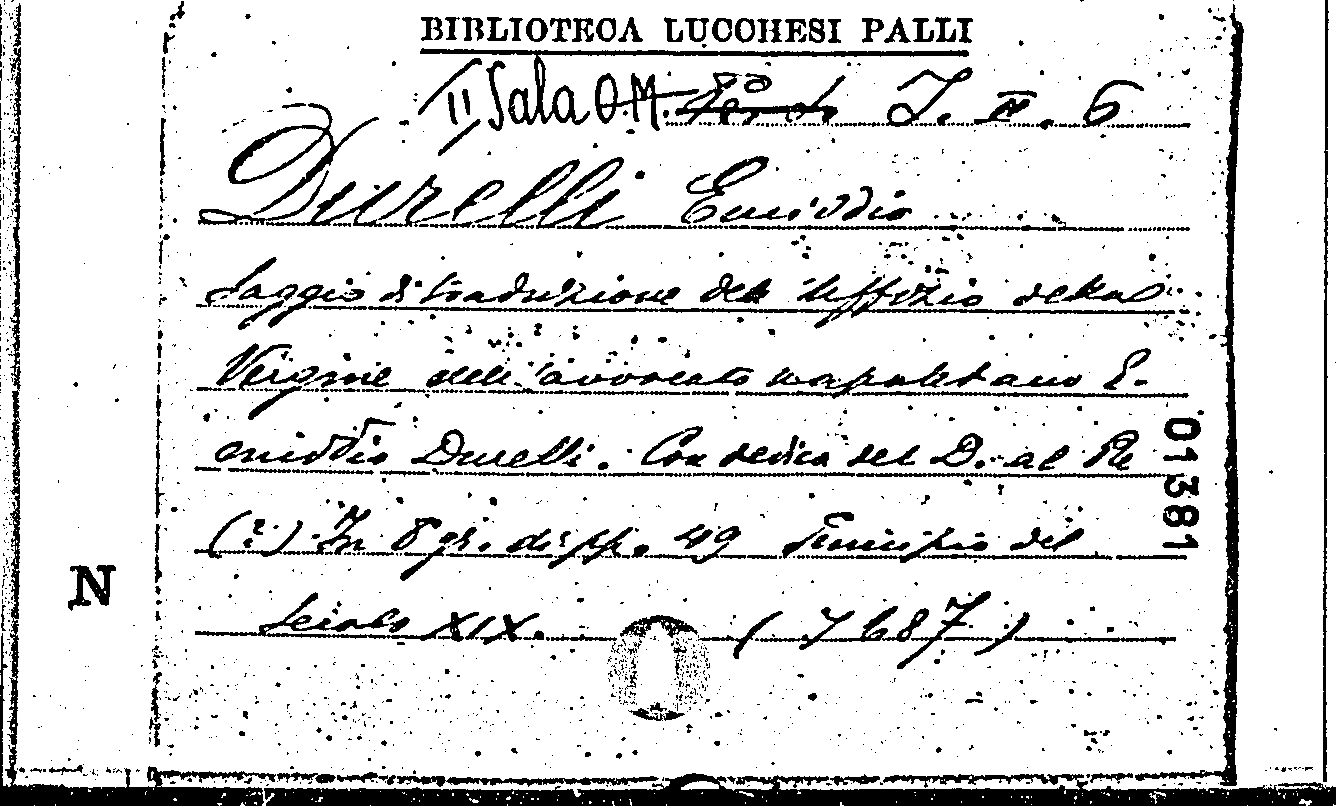 BIBLIOTECA LUCCHESI PALLI
II Sala O.M. I. II. 6
Durelli Emiddio
Saggio di traduzione dell'Uffizio della
Vergine dell'avvocato napoletano E-
middio Durelli. Con dedica del D. al Re
(?) In 8 gr. di pp. 49 Principio del
Secolo XIX. (7687)
01381
N